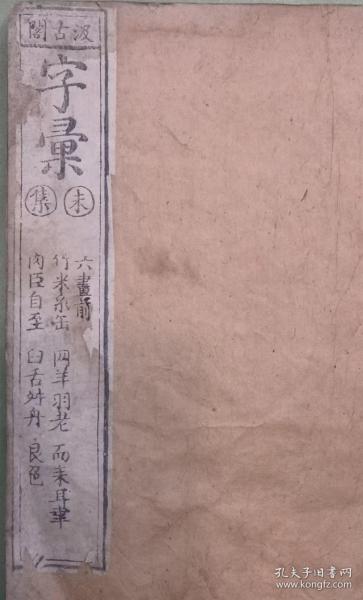 汲古閣
字彙
未集
六畫前
竹米糸缶 网羊羽老 而耒耳聿
肉臣自至 臼舌舛舟 艮色
孔夫子旧书网